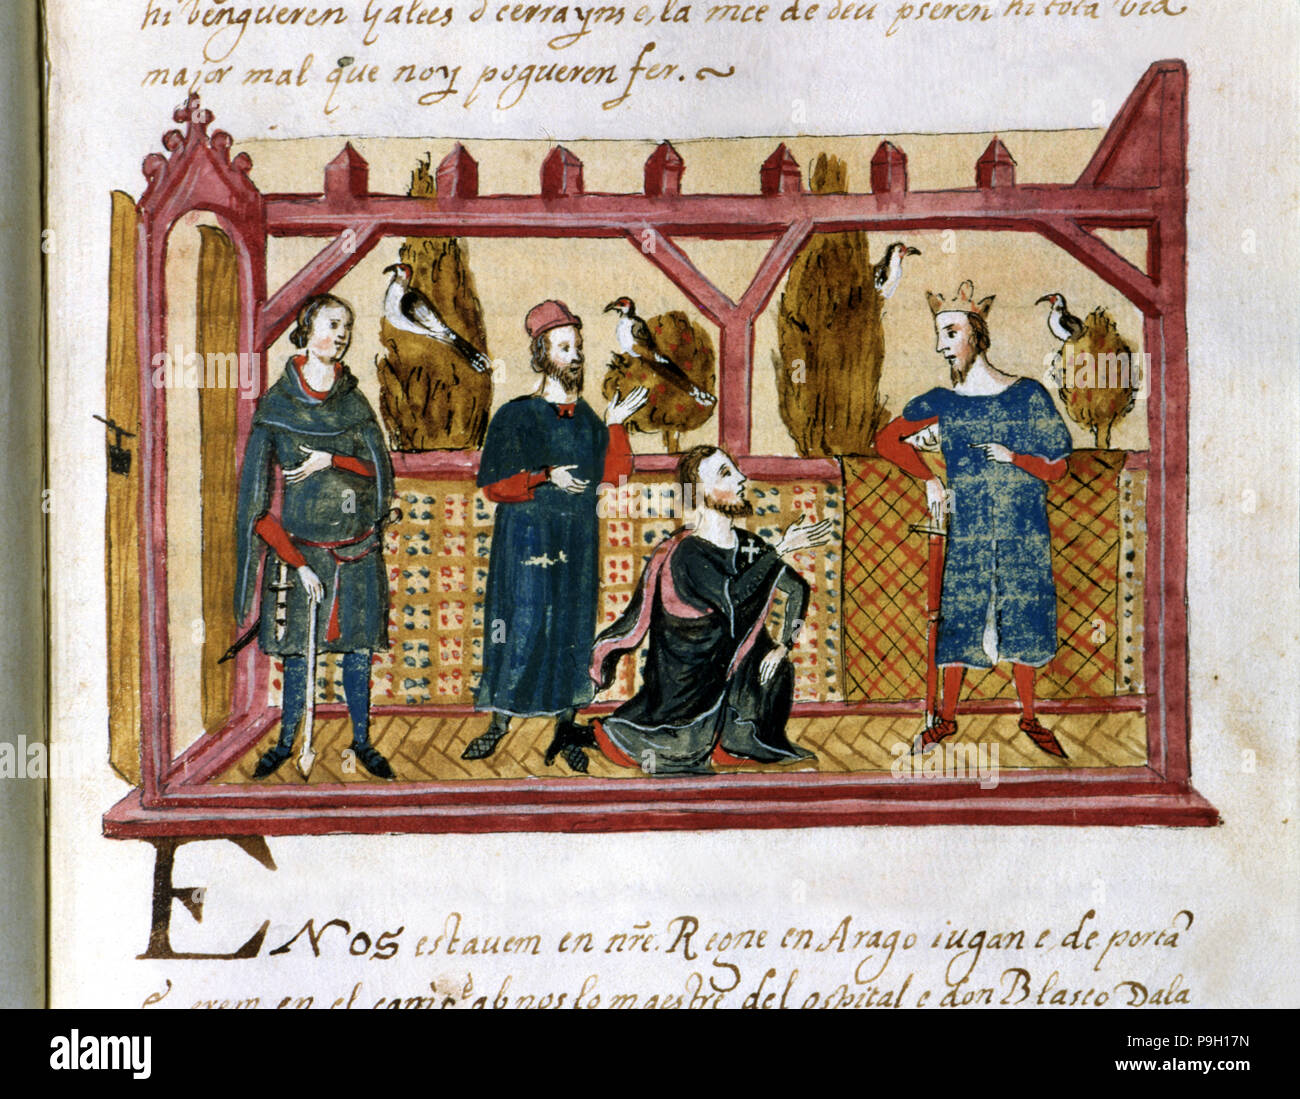 hi vengueren Galees d serrayns e, la mce de deu pseren hi tota via
major mal que noy pogueren fer.
E Nos estavem en nre. Regne en Arago iugan e, de porta
erem en el ab nos lo maestre del ospital e don Blasco Dala
alamy
Image ID: P9H17N
www.alamy.com